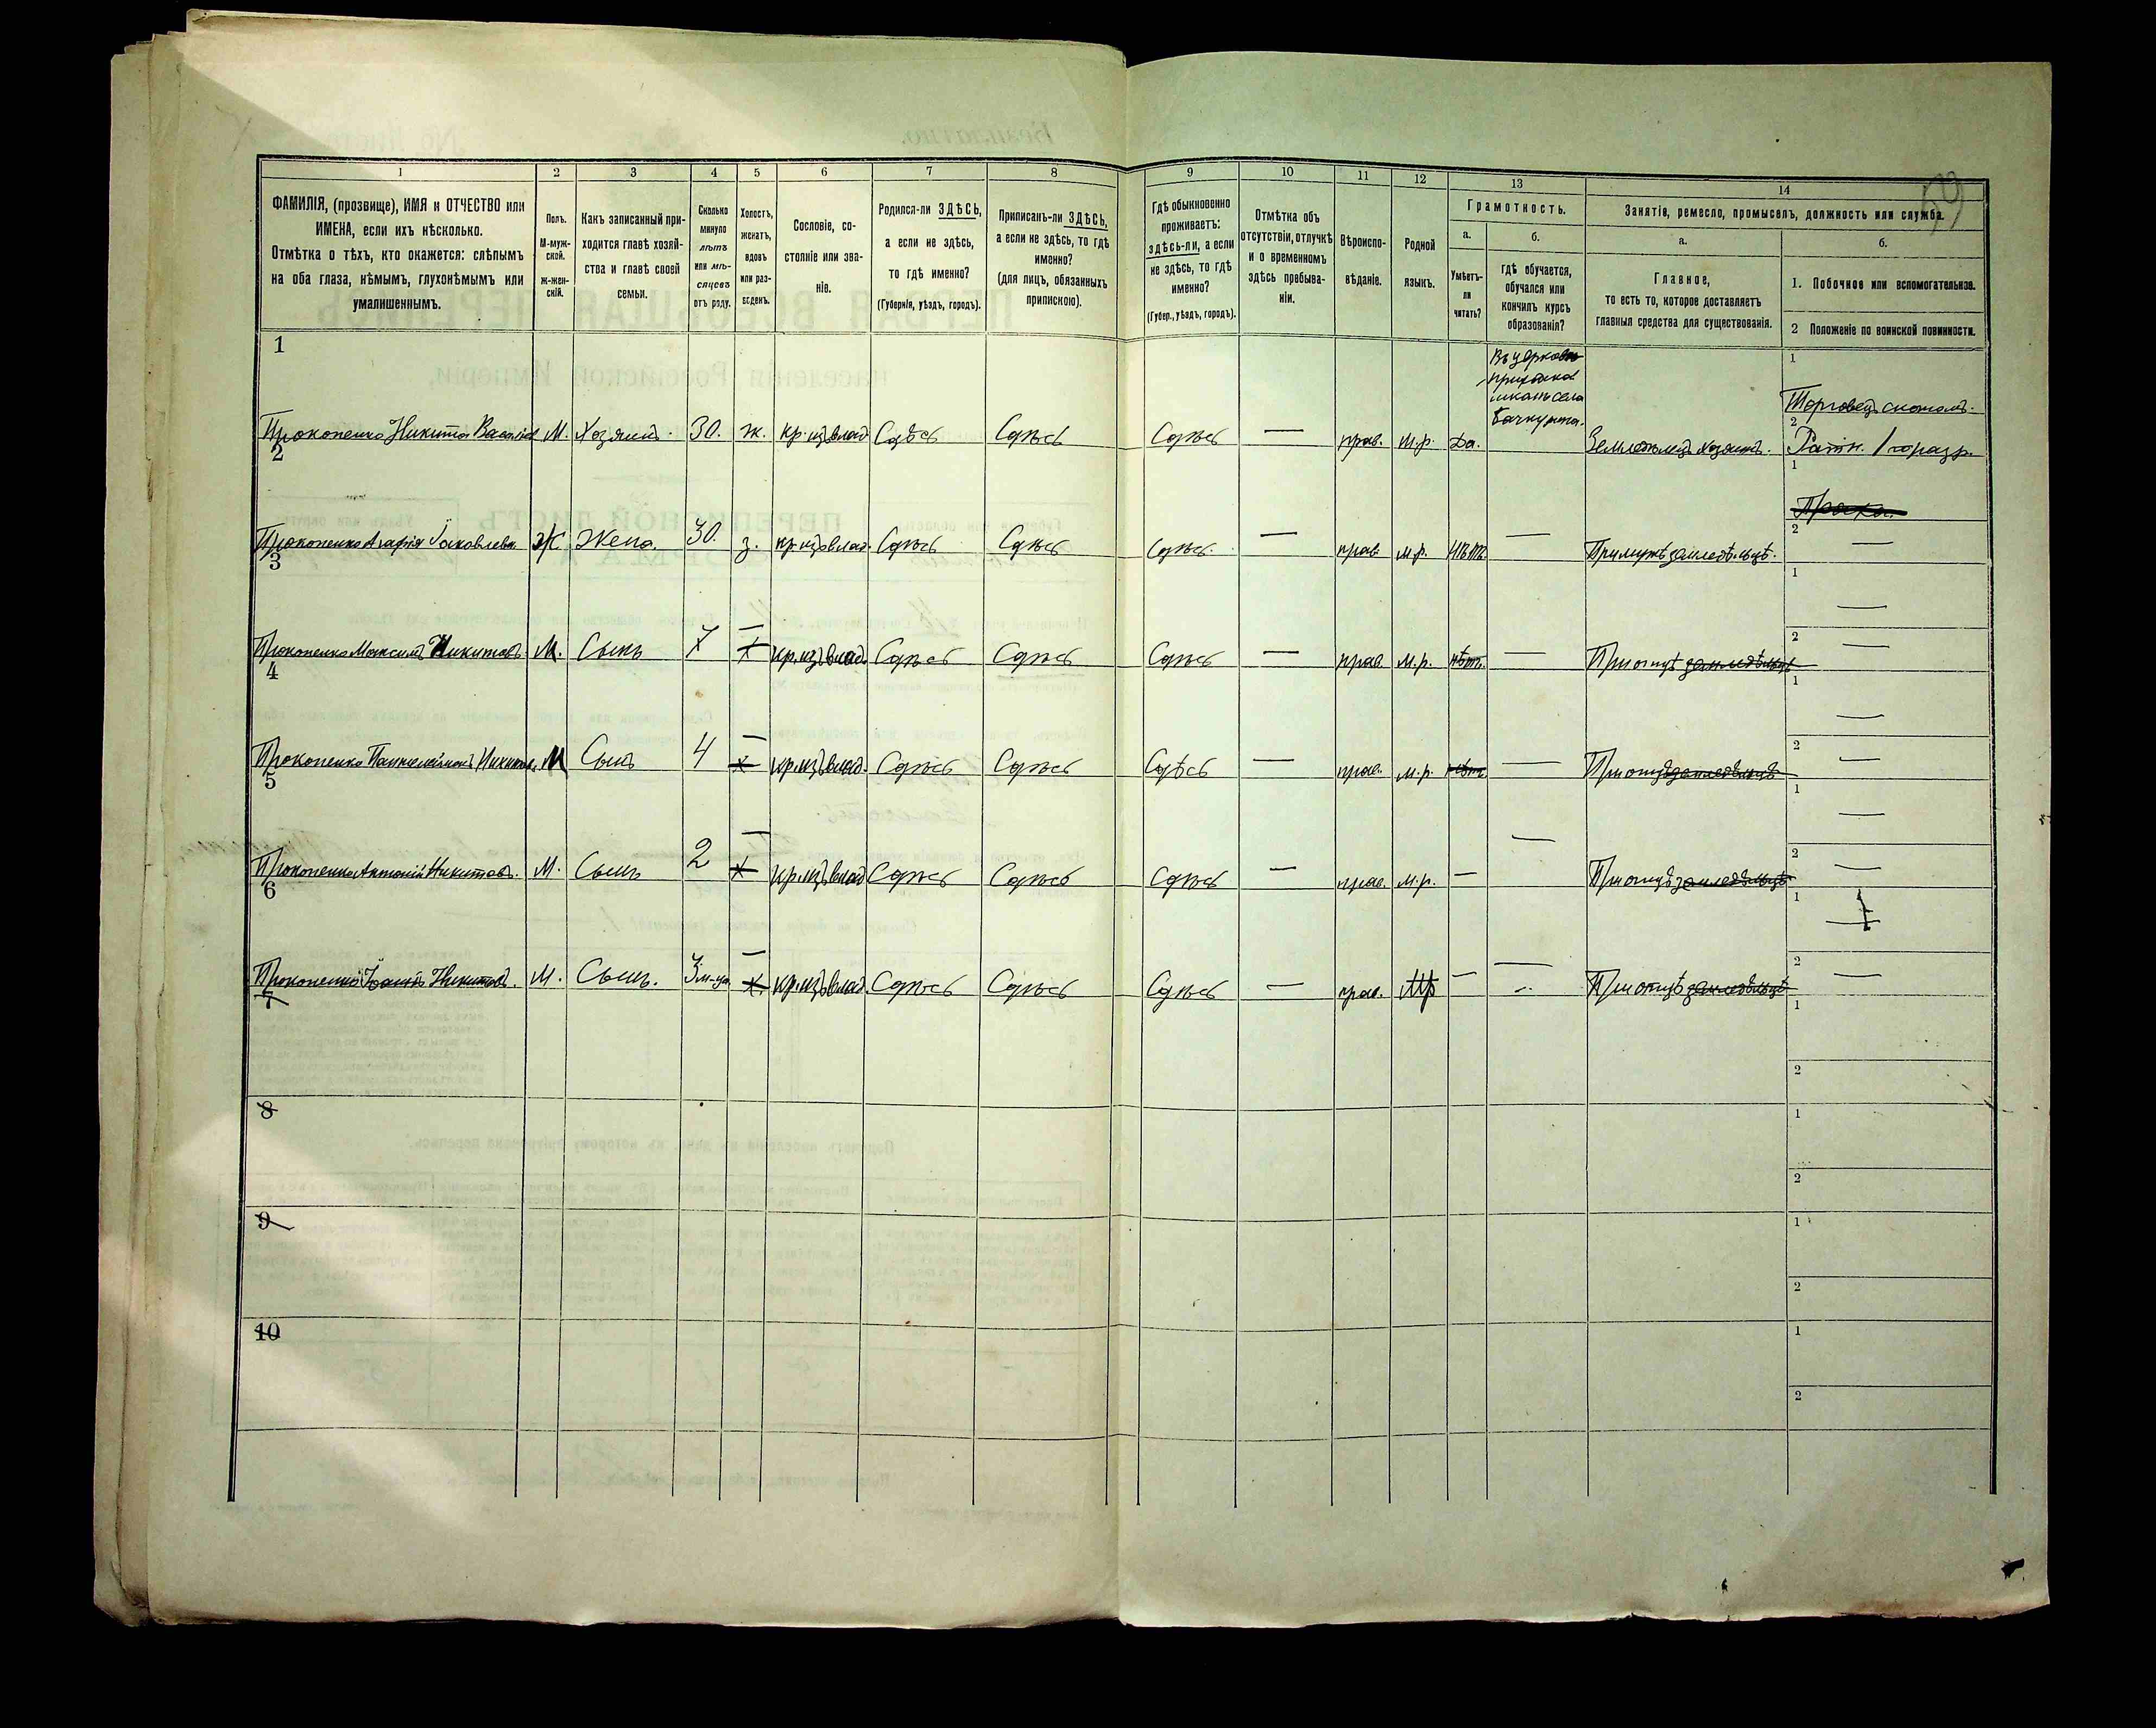 59
1 2 3 4 5 6 7 8 9 10 11 12 13 14
ФАМИЛІЯ, (прозвище), ИМЯ и ОТЧЕСТВО или
ИМЕНА, если ихъ нѣсколько.
Отмѣтка о тѣхъ, кто окажется: слѣпымъ
на оба глаза, нѣмымъ, глухонѣмымъ или
умалишеннымъ.
Полъ.
М-муж-
ской.
ж-жен-
скій.
Какъ записанный при-
ходится главѣ хозяй-
ства и главѣ своей
семьи.
Сколько
минуло
лѣтъ
или мѣ-
сяцевъ
отъ роду.
Холостъ,
женатъ,
вдовъ
или раз-
веденъ.
Сословіе, со-
стояніе или зва-
ніе.
Родился-ли ЗДѢСЬ,
а если не здѣсь,
то гдѣ именно?
(Губернія, уѣздъ, городъ).
Приписанъ-ли ЗДѢСЬ,
а если не здѣсь, то гдѣ
именно?
(для лицъ, обязанныхъ
припискою).
Гдѣ обыкновенно
проживаетъ:
здѣсь-ли, а если
не здѣсь, то гдѣ
именно?
(Губер., уѣздъ, городъ).
Отмѣтка объ
отсутствіи, отлучкѣ
и о временномъ
здѣсь пребыва-
ніи.
Вѣроиспо-
вѣданіе.
Родной
языкъ.
Грамотность.
а.
Умѣетъ-
ли
читать?
б.
гдѣ обучается,
обучался или
кончилъ курсъ
образованія?
Занятія, ремесло, промыселъ, должность или служба.
а.
Главное,
то есть то, которое доставляетъ
главныя средства для существованія.
б.
1. Побочное или вспомогательное.
2 Положеніе по воинской повинности.
1
Въ церковн
приходской
школѣ села
1 Торговецъ скотомъ.
Прокопенко Никита Василіев М. Хозяинъ. 30. ж. кр. изъ влад Сдѣсь Сдѣсь Сдѣсь — прав. м.р. Да. Земледѣлецъ хозяинъ. 2 Ратн. 1го разр.
2
1 Пряха.
Прокопенко Агафія Яковлева Ж Жена. 30. з. кр. изъ влад. Сдѣсь Сдѣсь Сдѣсь. — прав. м.р. нѣтъ — При мужѣ земледѣльцѣ. 2 —
3
1 —
Прокопенко Максимъ Никитовъ М. Сынъ 7 — х кр. изъ влад. Сдѣсь Сдѣсь Сдѣсь — прав. м.р. нѣтъ. — При отцѣ земледѣльцѣ 2 —
4
1 —
Прокопенко Пантелеймонъ Никитов. М Сынъ 4 — х кр. изъ влад. Сдѣсь Сдѣсь Сдѣсь — прав. м.р. нѣтъ — При отцѣ земледѣльцѣ 2 —
5
1 —
Прокопенко Антоній Никитовъ. М. Сынъ 2 — х кр. изъ влад Сдѣсь Сдѣсь Сдѣсь — прав. м.р. — — При отцѣ земледѣльцѣ 2 —
6
1
Прокопенко Никитовъ. М. Сынъ. 3 м-ца — х. кр. изъ влад. Сдѣсь Сдѣсь Сдѣсь — прав. мр — — При отцѣ земледѣльцѣ 2 —
7
1
2
8
1
2
9
1
2
10
1
2